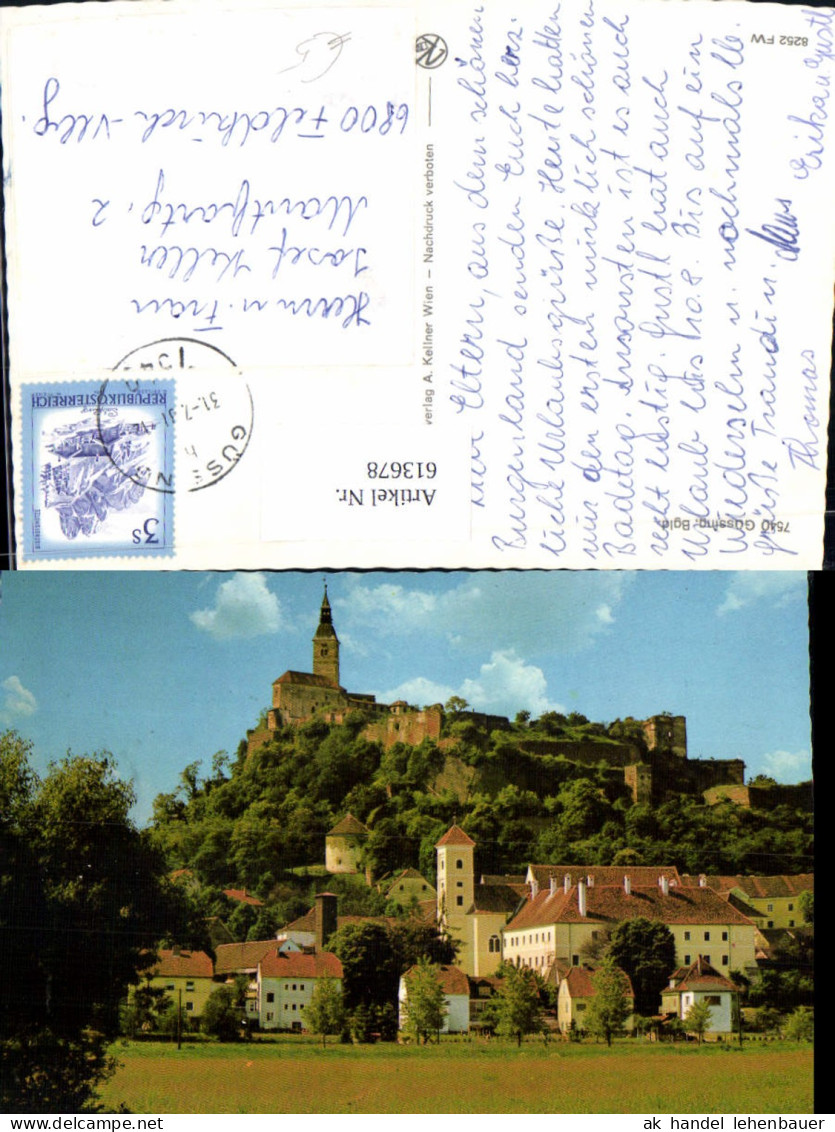 8252 FW
Liebe Eltern, aus dem schönen
Burgenland senden Euch herz-
liche Urlaubsgrüße. Heute hatten
wir den ersten wirklich schönen
Badetag. Ansonsten ist es auch
recht lustig. Gustl hat auch
Urlaub bis 10.8. Bis auf ein
Wiedersehn u. nochmals lb.
Grüße Traudi u.
Thomas Erika u Gustl
7540 Güssing, Bgld.
verlag A. Kellner Wien — Nachdruck verboten
Herrn u. Frau
Josef Keller
2
6800 Feldkirch
REPUBLIK ÖSTERREICH
3S
31.-7.
Artikel Nr.
613678
ak handel lehenbauer